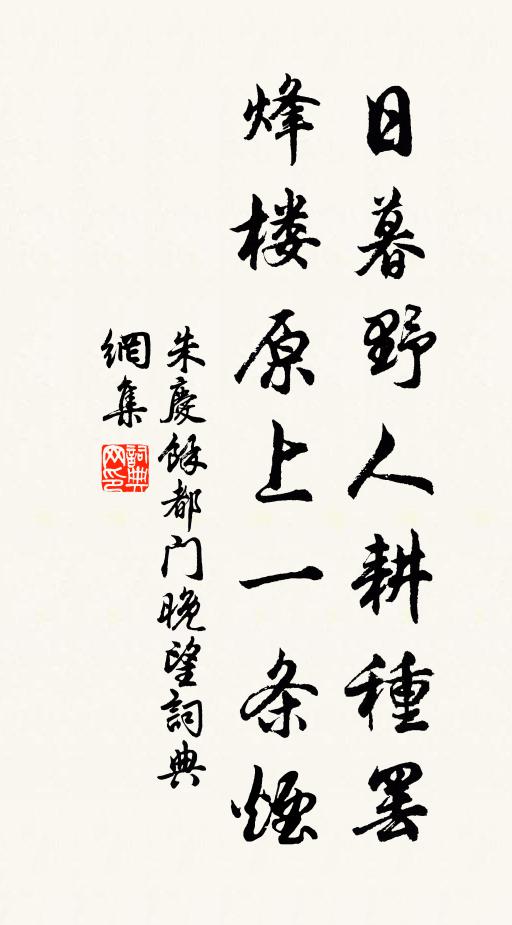 日暮野人耕種罢
烽楼原上一条煙
朱慶餘都门晚望詞典
網集
詞典
网印